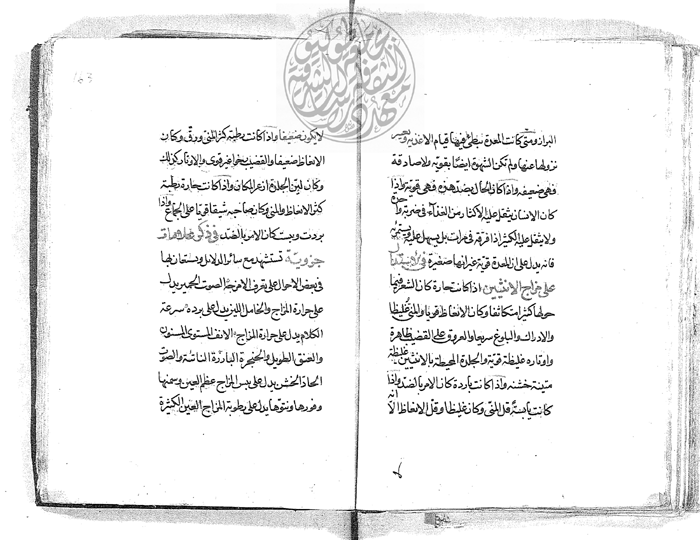 البراز ومتى كانت المعدة يبطئ فيها قيام الاغذية ويعسر
نزولها عنها ولم تكن الشهوة ايضا بقوية ولا صادقة
فهي ضعيفه واذا كان الحال بضد هذه فهي قوية واذا
كان الانسان يثقل عليه الاكثار من الغذاء في ضربة واحدة
ولا يثقل عليه الكثير اذا فرقه في مرات بل يسهل عليه ويستمريه
فانه يدل على ان المعدة قوية غير انها صغيرة في الاستدلال
على مزاج الانثيين اذا كانت حارة كان الشعر فيما
حولها كثيرا متكاثفا وكان الانعاظ قويا والمني غليظا
والادراك والبلوغ سريعا والعروق على القضيب ظاهرة
واوتاره غليظة قوية والجلدة المحيطة بالانثيين غليظة
متينة خشنه واذا كانت باردة كان الامر بالضد واذا
كانت يابسة قل المني وكان غليظا وقل الانعاظ الا انه
لا يكون ضعيفا واذا كانت رطبة كثر المني ورق وكان
الانعاظ ضعيفا والقضيب غير قوي والاوتار كذلك
وكان لين الجلدة ازعر المكان واذا كانت حارة رطبة
كثر الانعاظ والمني وكان صاحبه شبقا قويا على الجماع واذا
بردت ويبست كان الامر بالضد في ذكر علامات
جزوية تستشهد مع سائر الدلائل ويستعان بها
في بعض الاحوال على تعرف الامزجة الصوت الجهير يدل
على حرارة المزاج والخامل اللين يدل على برده سرعة
الكلام يدل على حرارة المزاج الانف المستوي المسنون
والعنق الطويل والحنجرة البارزة الناتئة والصوت
الحاد الخشن يدل على يبس المزاج عظم العين وسمنها
وفورها ونتوها يدل على رطوبة المزاج العين الكثيرة
163